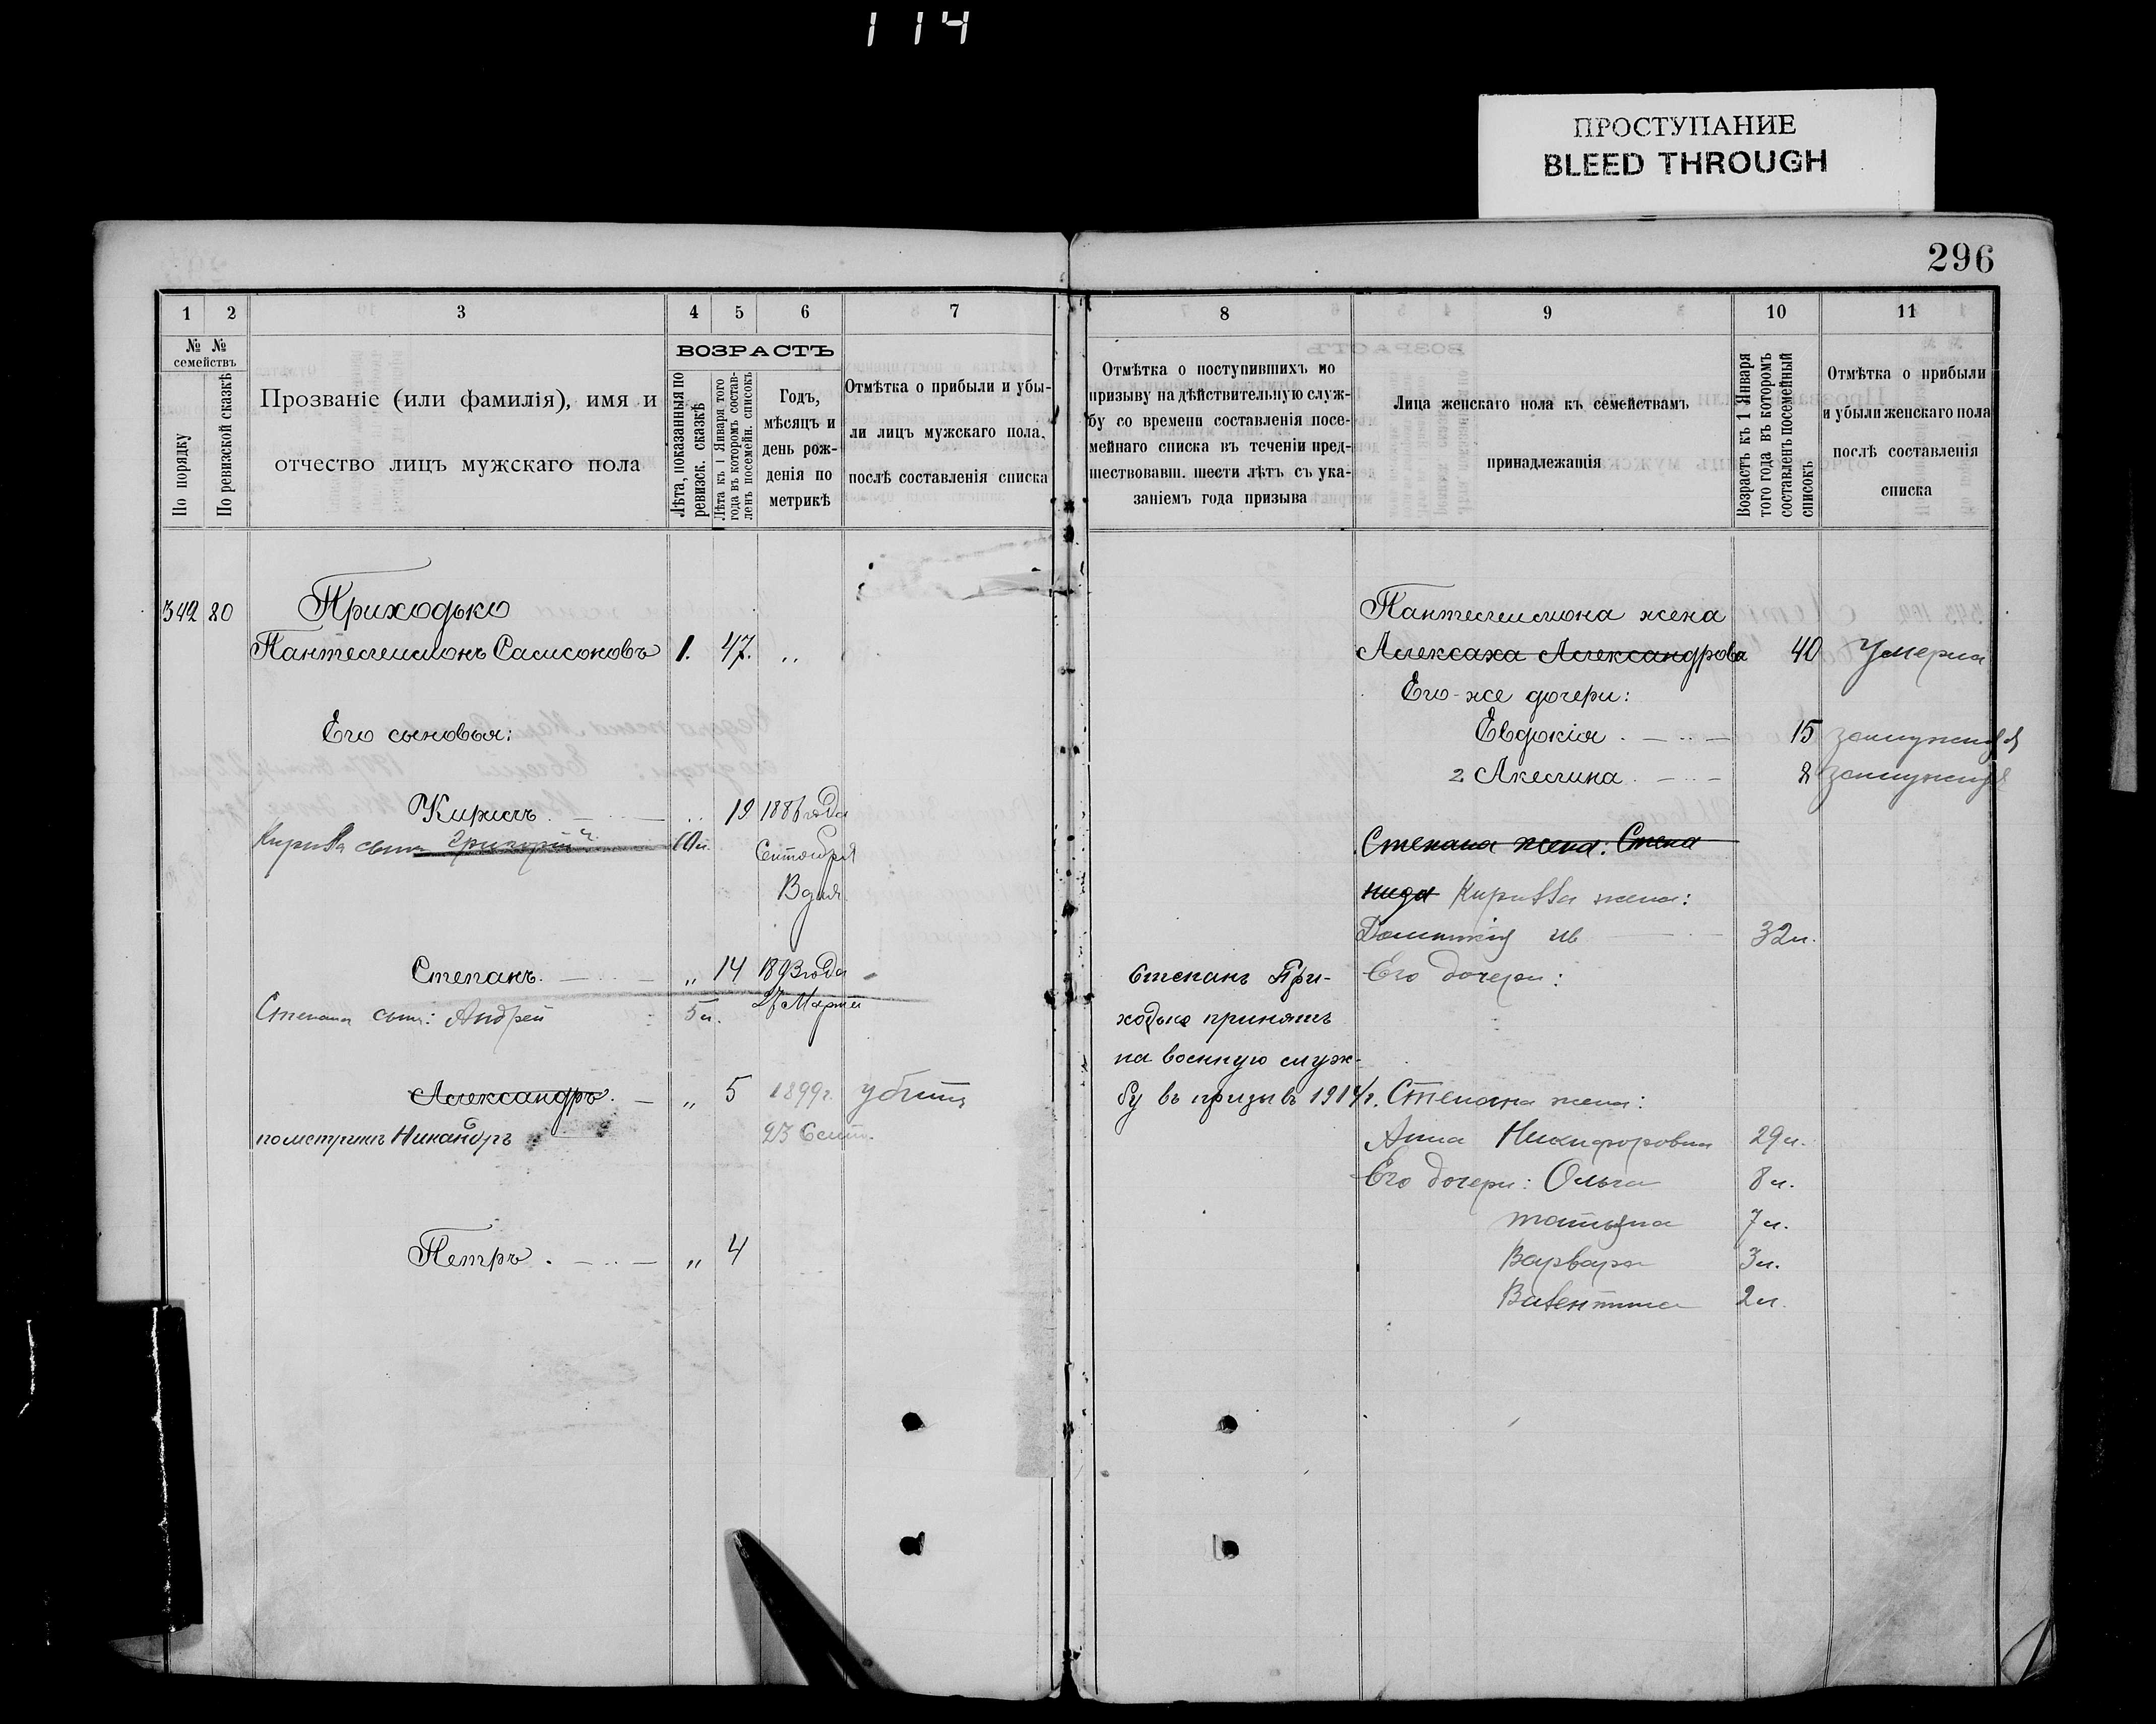 114
ПРОСТУПАНИЕ
BLEED THROUGH
296
1 2 3 4 5 6 7
№ № семействъ
По порядку
По ревизской сказкѣ
Прозваніе (или фамилія), имя и
отчество лицъ мужскаго пола
ВОЗРАСТЪ
Лѣта, показанныя по
ревизск. сказкѣ
Лѣта къ 1 Января того
года въ которомъ состав-
ленъ посемейн. списокъ
Годъ,
мѣсяцъ и
день рож-
денія по
метрикѣ
Отмѣтка о прибыли и убы-
ли лицъ мужскаго пола,
послѣ составленія списка
342 80 Приходько
Пантелеимонъ Самсоновъ 1. 47. „
Его сыновья:
Кирилъ 19 1886 года
Кирилла сынъ Григорій 10л. Сентября
В дня
Степанъ „ 14 1893 года
27 Марта
Степана сынъ: Андрей 5л.
Александръ „ 5 1899г. убитъ
по метрикѣ Никандръ 23 Сент.
Петръ „ 4
8 9 10 11
Отмѣтка о поступившихъ по
призыву на дѣйствительную служ-
бу со времени составленія посе-
мейнаго списка въ теченіи пред-
шествовавш. шести лѣтъ съ ука-
заніемъ года призыва
Лица женскаго пола къ семействамъ
принадлежащія
Возрастъ къ 1 Января
того года въ которомъ
составленъ посемейный
списокъ
Отмѣтка о прибыли
и убыли женскаго пола
послѣ составленія
списка
Пантелеимона жена
Алексаха Александрова 40 Умерла
Его-же дочери:
Евдокія 15 замужемъ
2 Акелина 8 замужемъ
Степана жена: Степа
нида Кирилла жена:
Домникія Ив 32л.
Степанъ При- Его дочери:
ходько принятъ
на военную служ-
бу въ призывъ 1914 г. Степана жена:
Анна Никифоровна 29л.
Его дочери: Ольга 8л.
Татьяна 7л.
Варвара 3л.
Валентина 2л.